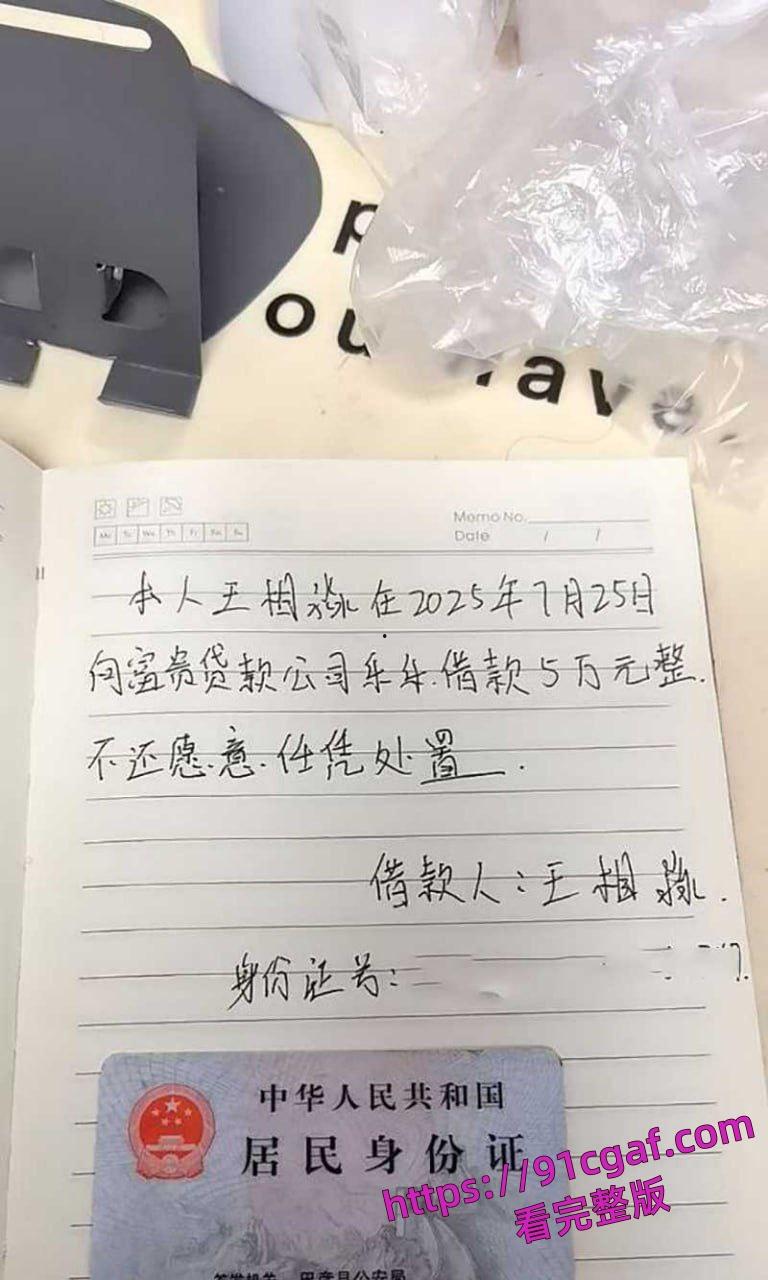 Memo No.
Date / /
Mo Tu We Th Fr Sa Su
本人王相淼在2025年7月25日
向富贵贷款公司乐乐.借款5万元整.
不还愿意.任凭处置.
借款人:王相淼.
身份证号:
中华人民共和国
居民身份证
https://91cgaf.com
看完整版